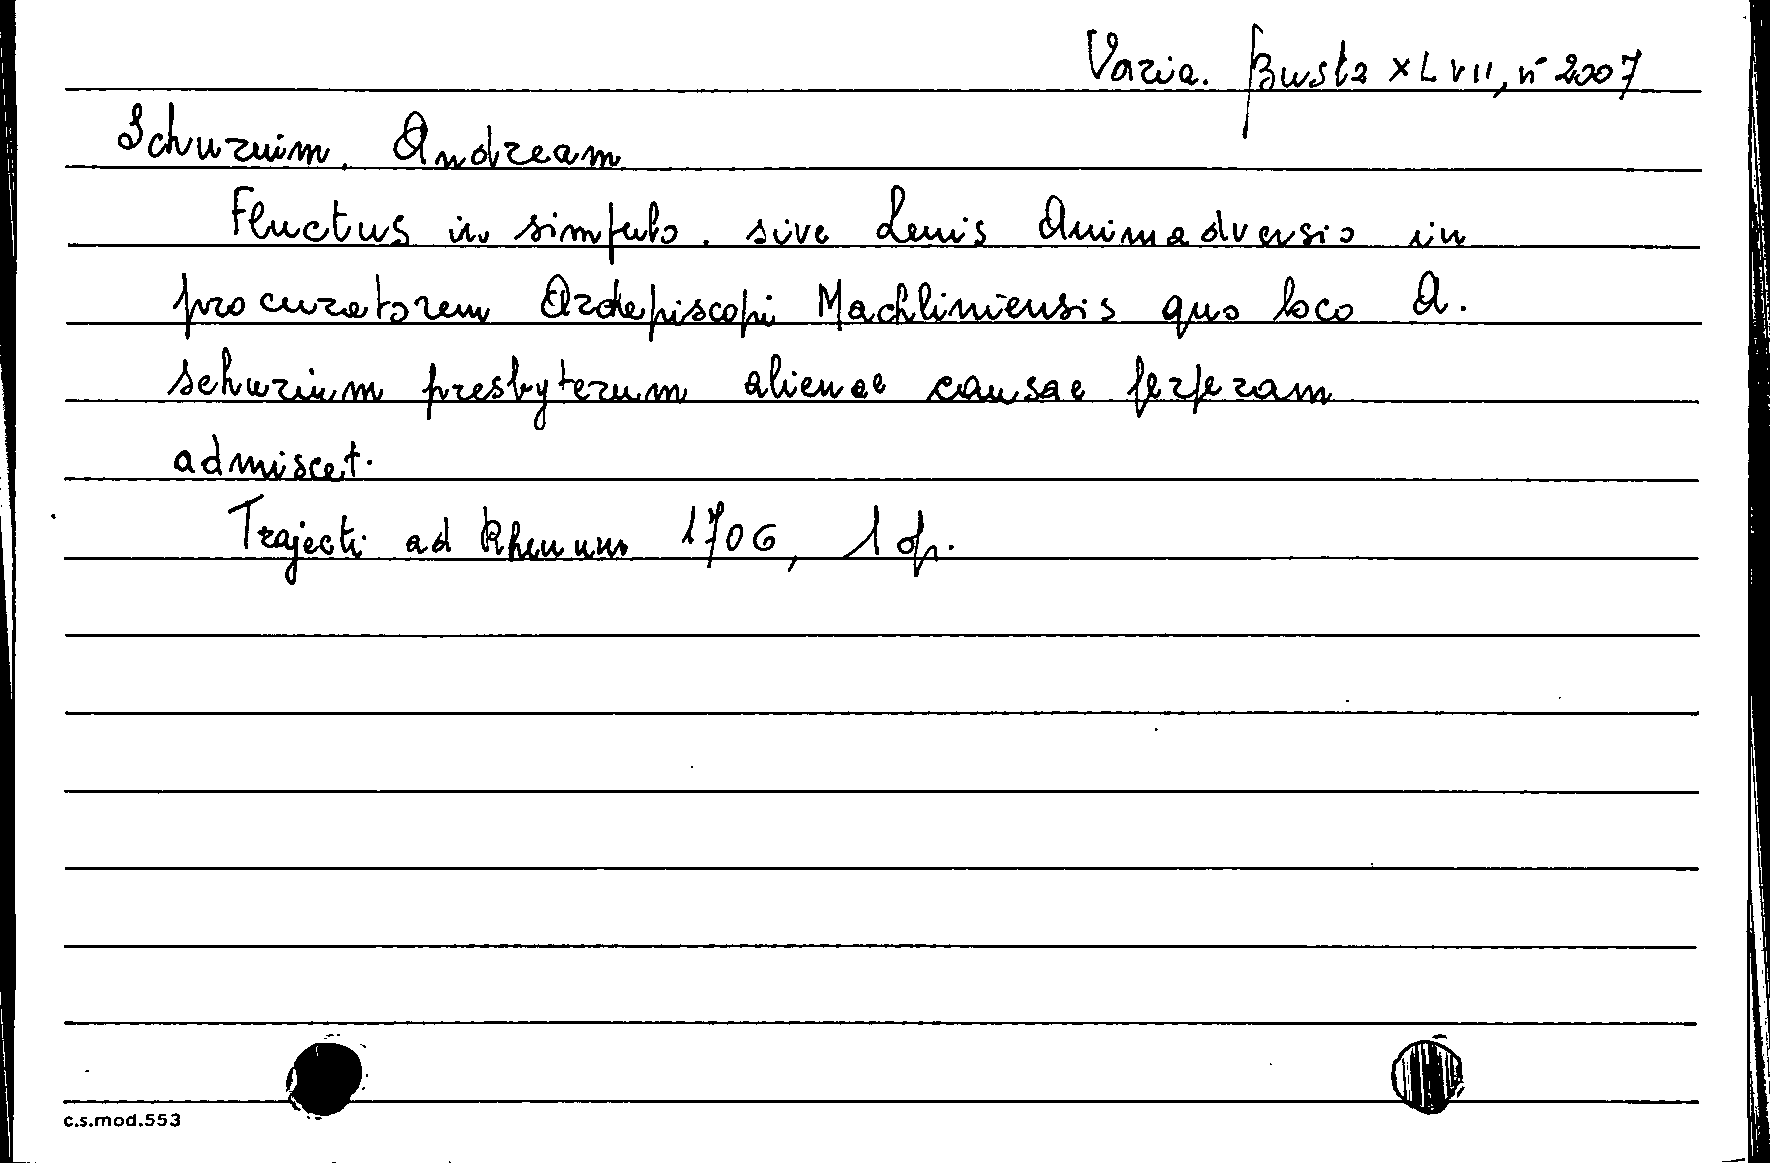 Varia. Busta XLVII, n° 2007
Schurium, Andream
Fluctus in simpulo. sive Lenis Animadversio in
procuratorem Archepiscopi Machliniensis quo loco A.
schurium presbyterum alienae causae perperam
admiscet.
Trajecti ad Rhenum 1706, 1 op.
c.s.mod.553